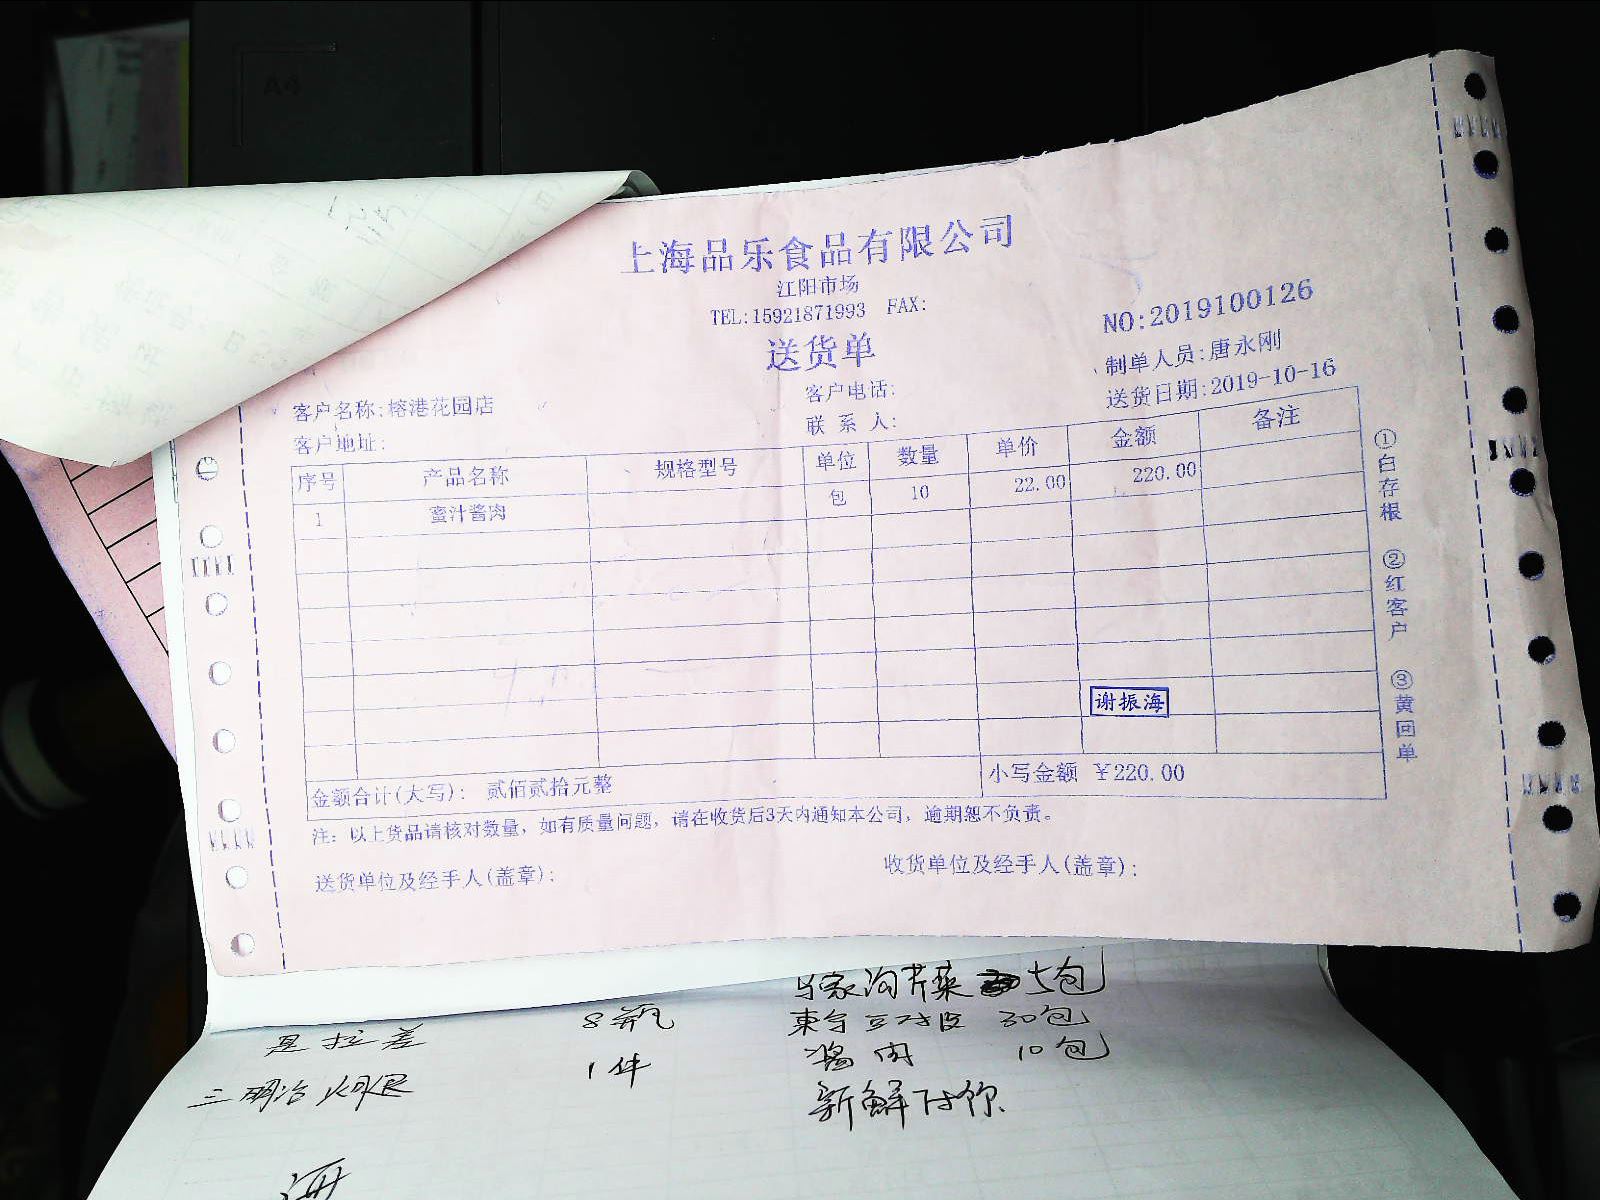 A4
上海品乐食品有限公司
江阳市场
TEL:15921871993 FAX:
送货单
NO:2019100126
制单人员:唐永刚
送货日期:2019-10-16
客户名称:榕港花园店
客户电话:
客户地址:
联系人:
序号 产品名称 规格型号 单位 数量 单价 金额 备注
1 蜜汁酱肉 包 10 22.00 220.00
谢振海
金额合计(大写): 贰佰贰拾元整 小写金额 ¥220.00
注: 以上货品请核对数量, 如有质量问题, 请在收货后3天内通知本公司, 逾期恕不负责。
送货单位及经手人(盖章):
收货单位及经手人(盖章):
①白存根 ②红客户 ③黄回单
马家沟芹菜 5包
是拉差 8瓶
30包
酱肉 10包
三明治火腿 1件
新鲜